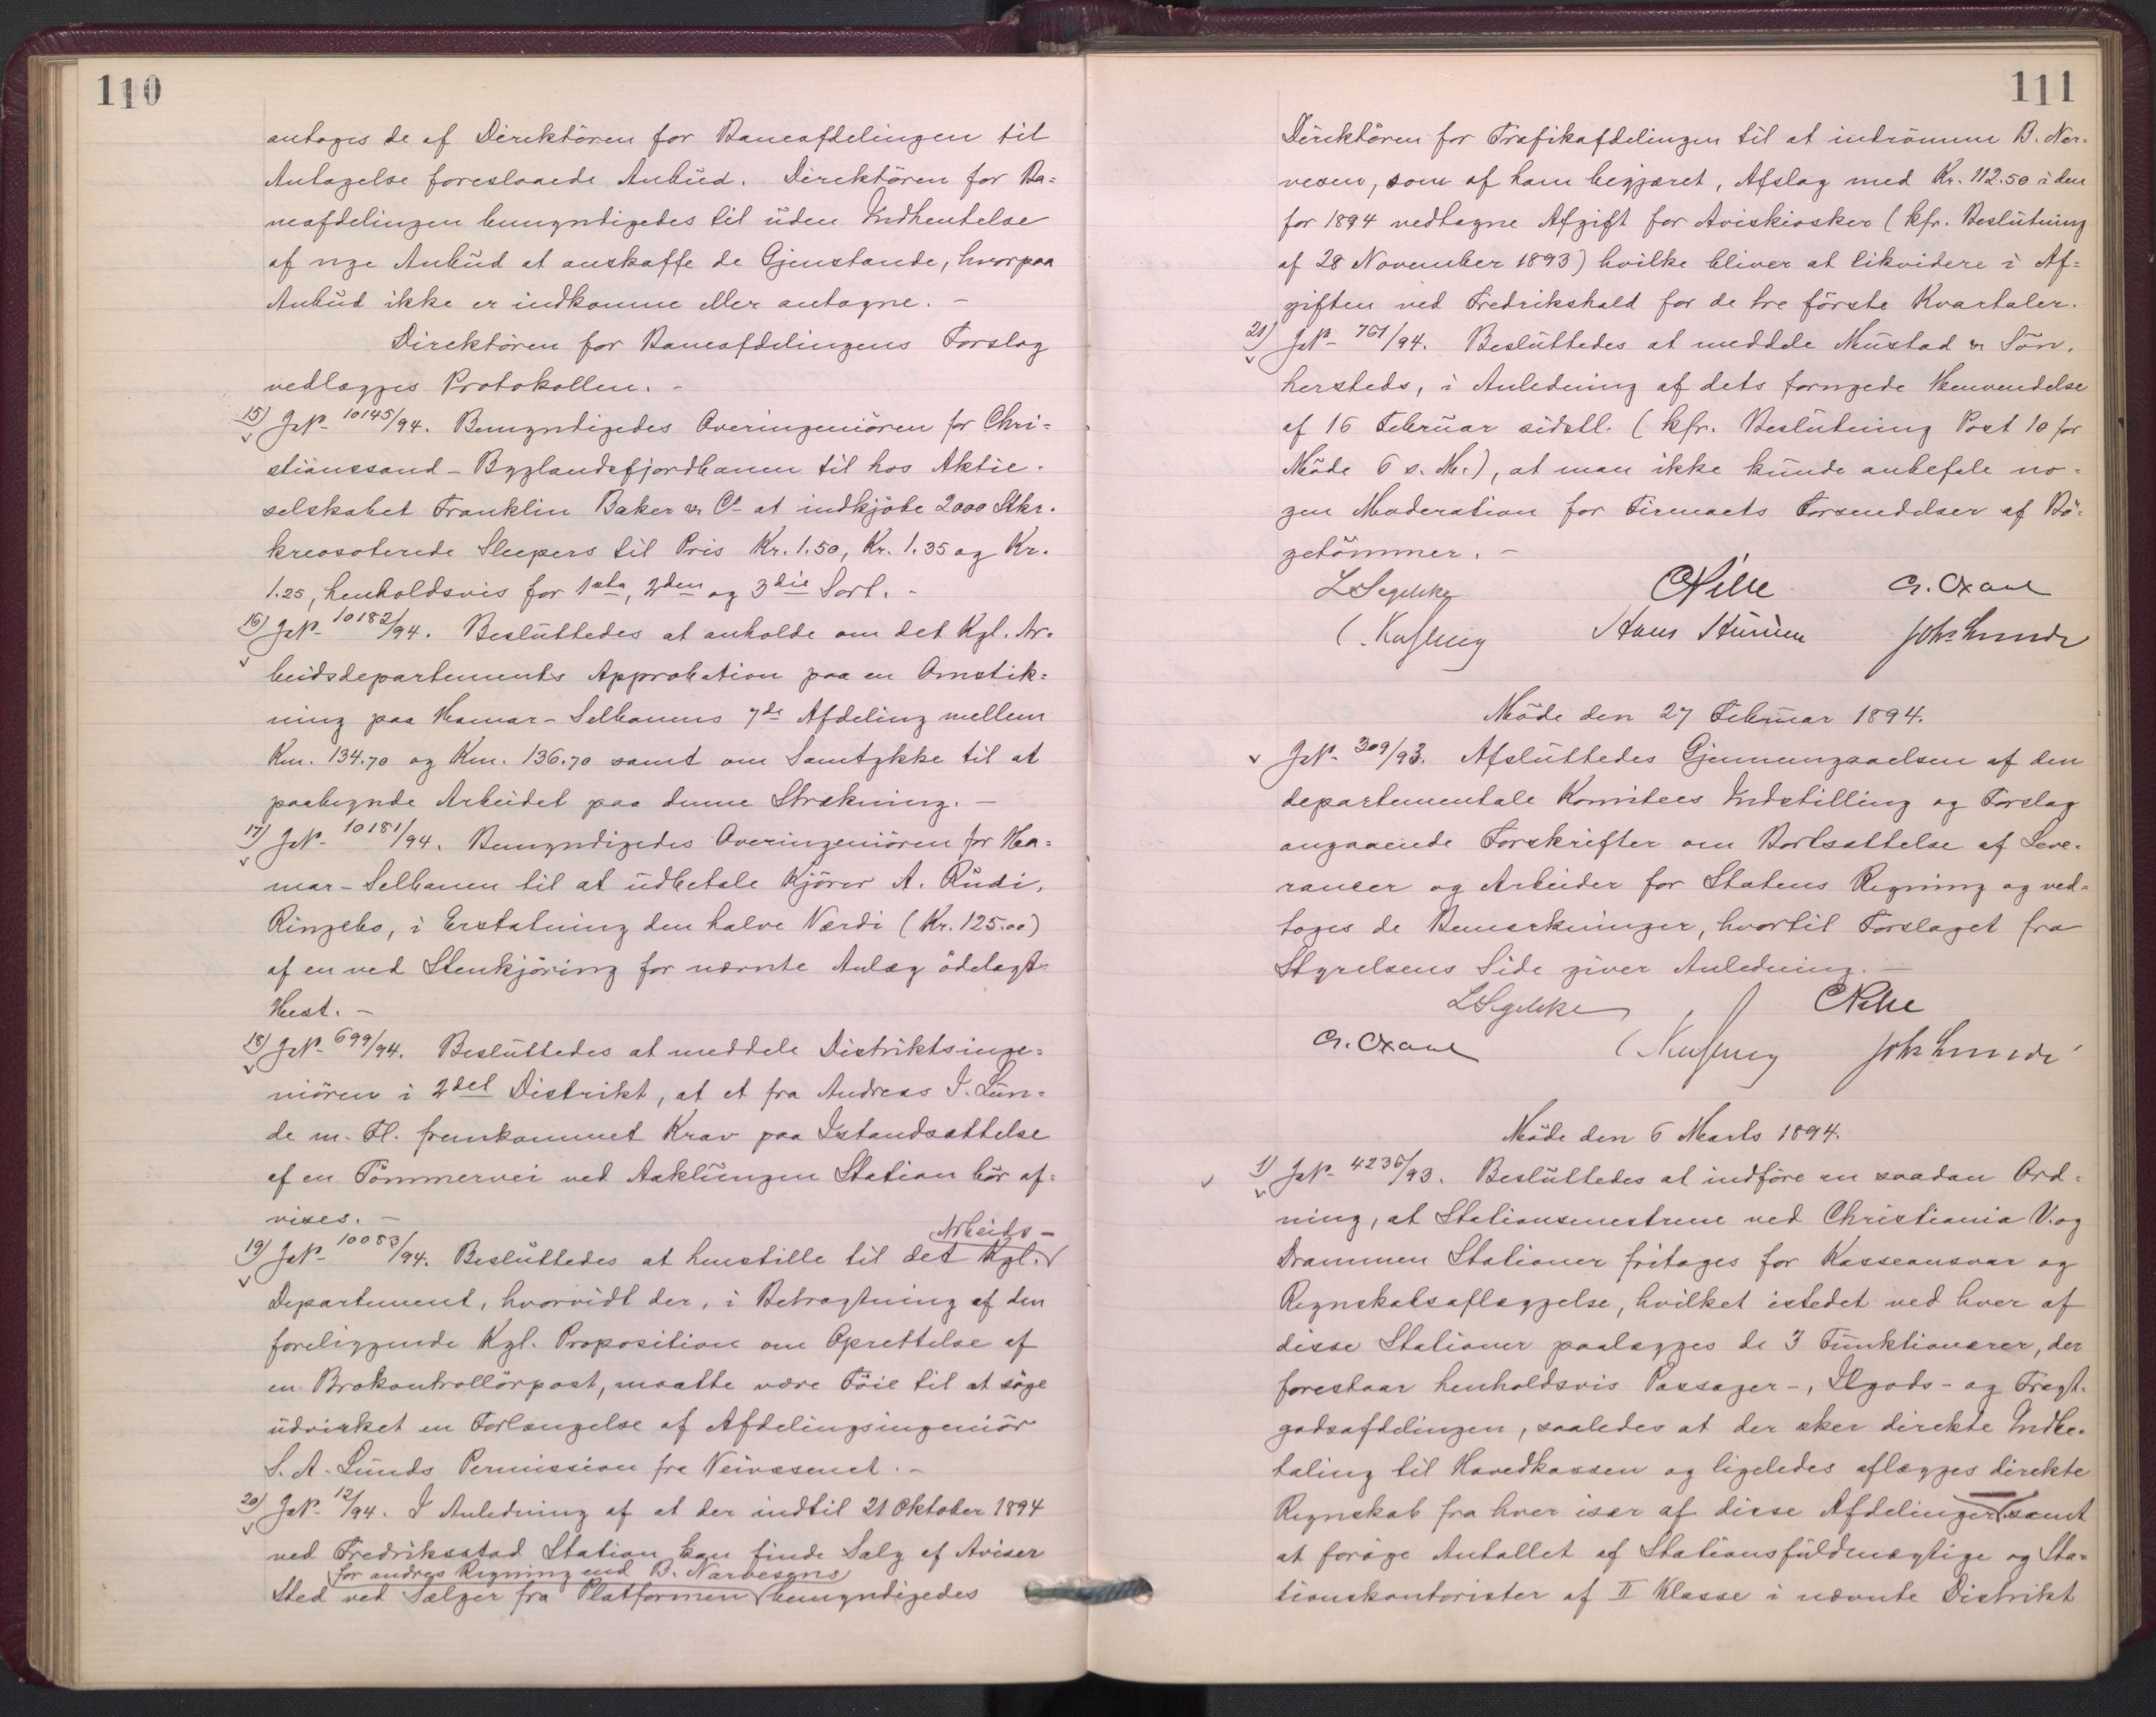 110
antages de af Direktören for Baneafdelingen til
Antagelse foreslaaede Anbud. Direktören for Ba=
neafdelingen bemyndigedes til uden Indhentelse
af nye Anbud at anskaffe de Gjenstande, hvorpaa
Anbud ikke er indkomne eller antagne. -
Direktören for Baneafdelingens Forslag
vedlægges Protokollen. -
15) JN. 10145/94. Bemyndigedes Overingeniören for Chri=
stianssand - Byglandsfjordbanen til hos Aktie=
selskabet Franklin Baker & Co at indkjöbe 2000 Stkr.
kreosoterede Sleepers til Pris Kr. 1.50, Kr. 1.35 og Kr.
1.25, henholdsvis for 1ste, 2den og 3die Sort. -
16) JN. 10182/94. Besluttedes at anholde om det Kgl. Ar=
beidsdepartements Approbation paa en Omstik=
ning paa Hamar - Selbanens 7de Afdeling mellem
Km. 134.70 og Km. 136.70 samt om Samtykke til at
paabegynde Arbeidet paa denne Strækning. -
17) JN. 10181/94. Bemyndigedes Overingeniören for Ha=
mar - Selbanen til at udbetale Kjörer A. Rudi,
Ringebo, i Erstatning den halve Værdi (Kr. 125.00)
af en ved Stenkjöring for nævnte Anlæg ödelagt
Hest. -
18) JN. 699/94. Besluttedes at meddele Distriktsinge=
niören i 2det Distrikt, at et fra Andreas J. Lun=
de m. Fl. fremkommet Krav paa Istandsættelse
af en Tömmervei ved Aaklungen Station bör af=
vises. -
Arbeids-
19) JN. 10083/94. Besluttedes at henstille til det Kgl.
Departement, hvorvidt der, i Betragtning af den
foreliggende Kgl. Proposition om Oprettelse af
en Brokontrollörpost, maatte være Föie til at söge
udvirket en Forlængelse af Afdelingsingeniör
S. A. Lunds Permission fra Veivæsenet. -
20) JN. 12/94. I Anledning af at der indtil 21 Oktober 1894
ved Fredriksstad Station kan finde Salg af Aviser
for andres Regning end B. Narvesens
Sted ved Sælger fra Platformen bemyndigedes
111
Direktören for Trafikafdelingen til at indrömme B. Nar=
vesen, som af ham begjæret, Afslag med Kr. 112.50 i den
for 1894 vedtagne Afgift for Aviskiosker (kfr. Beslutning
af 28 November 1893) hvilke bliver at likvidere i Af=
giften ved Fredrikshald for de tre förste Kvartaler.
21) JN. 761/94. Besluttedes at meddele Mustad & Sön,
hersteds, i Anledning af dets fornyede Henvendelse
af 16 Februar sidstl. (kfr. Beslutning Post 10 for
Möde 6 s. M.), at man ikke kunde anbefale no=
gen Moderation for Firmaets Forsendelser af Bö=
getömmer. -
LSegelcke CPihl Cr. Oxaal
Joh. Lunde
Möde den 27 Februar 1894.
JN. 309/93. Afsluttedes Gjennemgaaelsen af den
departementale Komitees Indstilling og Forslag
angaaende Forskrifter om Bortsættelse af Leve=
rancer og Arbeider for Statens Regning og ved=
toges de Bemærkninger, hvortil Forslaget fra
Styrelsens Side giver Anledning. -
LSegelcke CPihl
Cr. Oxaal Joh. Lunde
Möde den 6 Marts 1894.
1) JN. 4236/93. Besluttedes at indföre en saadan Ord=
ning, at Stationsmestrene ved Christiania V. og
Drammen Stationer fritages for Kasseansvar og
Regnskabsaflæggelse, hvilket istedet ved hver af
disse Stationer paalægges de 3 Funktionærer, der
forestaar henholdsvis Passager-, Ilgods- og Fragt=
godsafdelingen, saaledes at der sker direkte Indbe=
taling til Hovedkassen og ligeledes aflægges direkte
Regnskab fra hver især af disse Afdelinger samt
at foröge Antallet af Stationsfuldmægtige og Sta=
tionskontorister af II Klasse i nævnte Distrikt